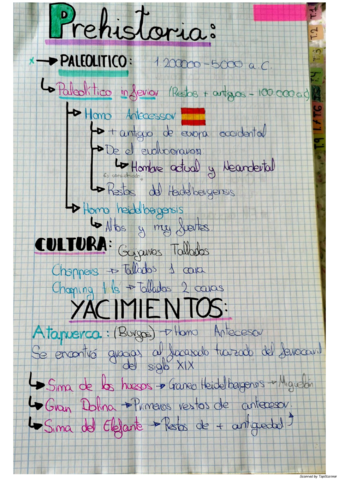 Prehistoria:
x → PALEOLITICO: 1200000-5000 a.C.
↳ Paleolítico inferior (Restos + antiguos - 100.000 a.C)
→ Homo Antecessor
→ + antiguo de europa occidental
→ De el evolucionaron
↳ Hombre actual y Neandertal
→ Restos del Heidelbergensis
→ Homo heidelbergensis
↳ Altos y muy fuertes
CULTURA: Guijarros Tallados
Choppers → Tallados 1 cara
Choping tls → Tallados 2 caras
YACIMIENTOS:
Atapuerca: (Burgos) → Homo Antecesor
Se encontró gracias al fracasado trazado del ferrocarril
del siglo XIX
↳ Sima de los huesos → Craneo Heidelbergensis → Miguelón
↳ Gran Dolina → Primeros restos de antecesor
↳ Sima del Elefante → Restos de + antiguedad
Scanned by TapScanner